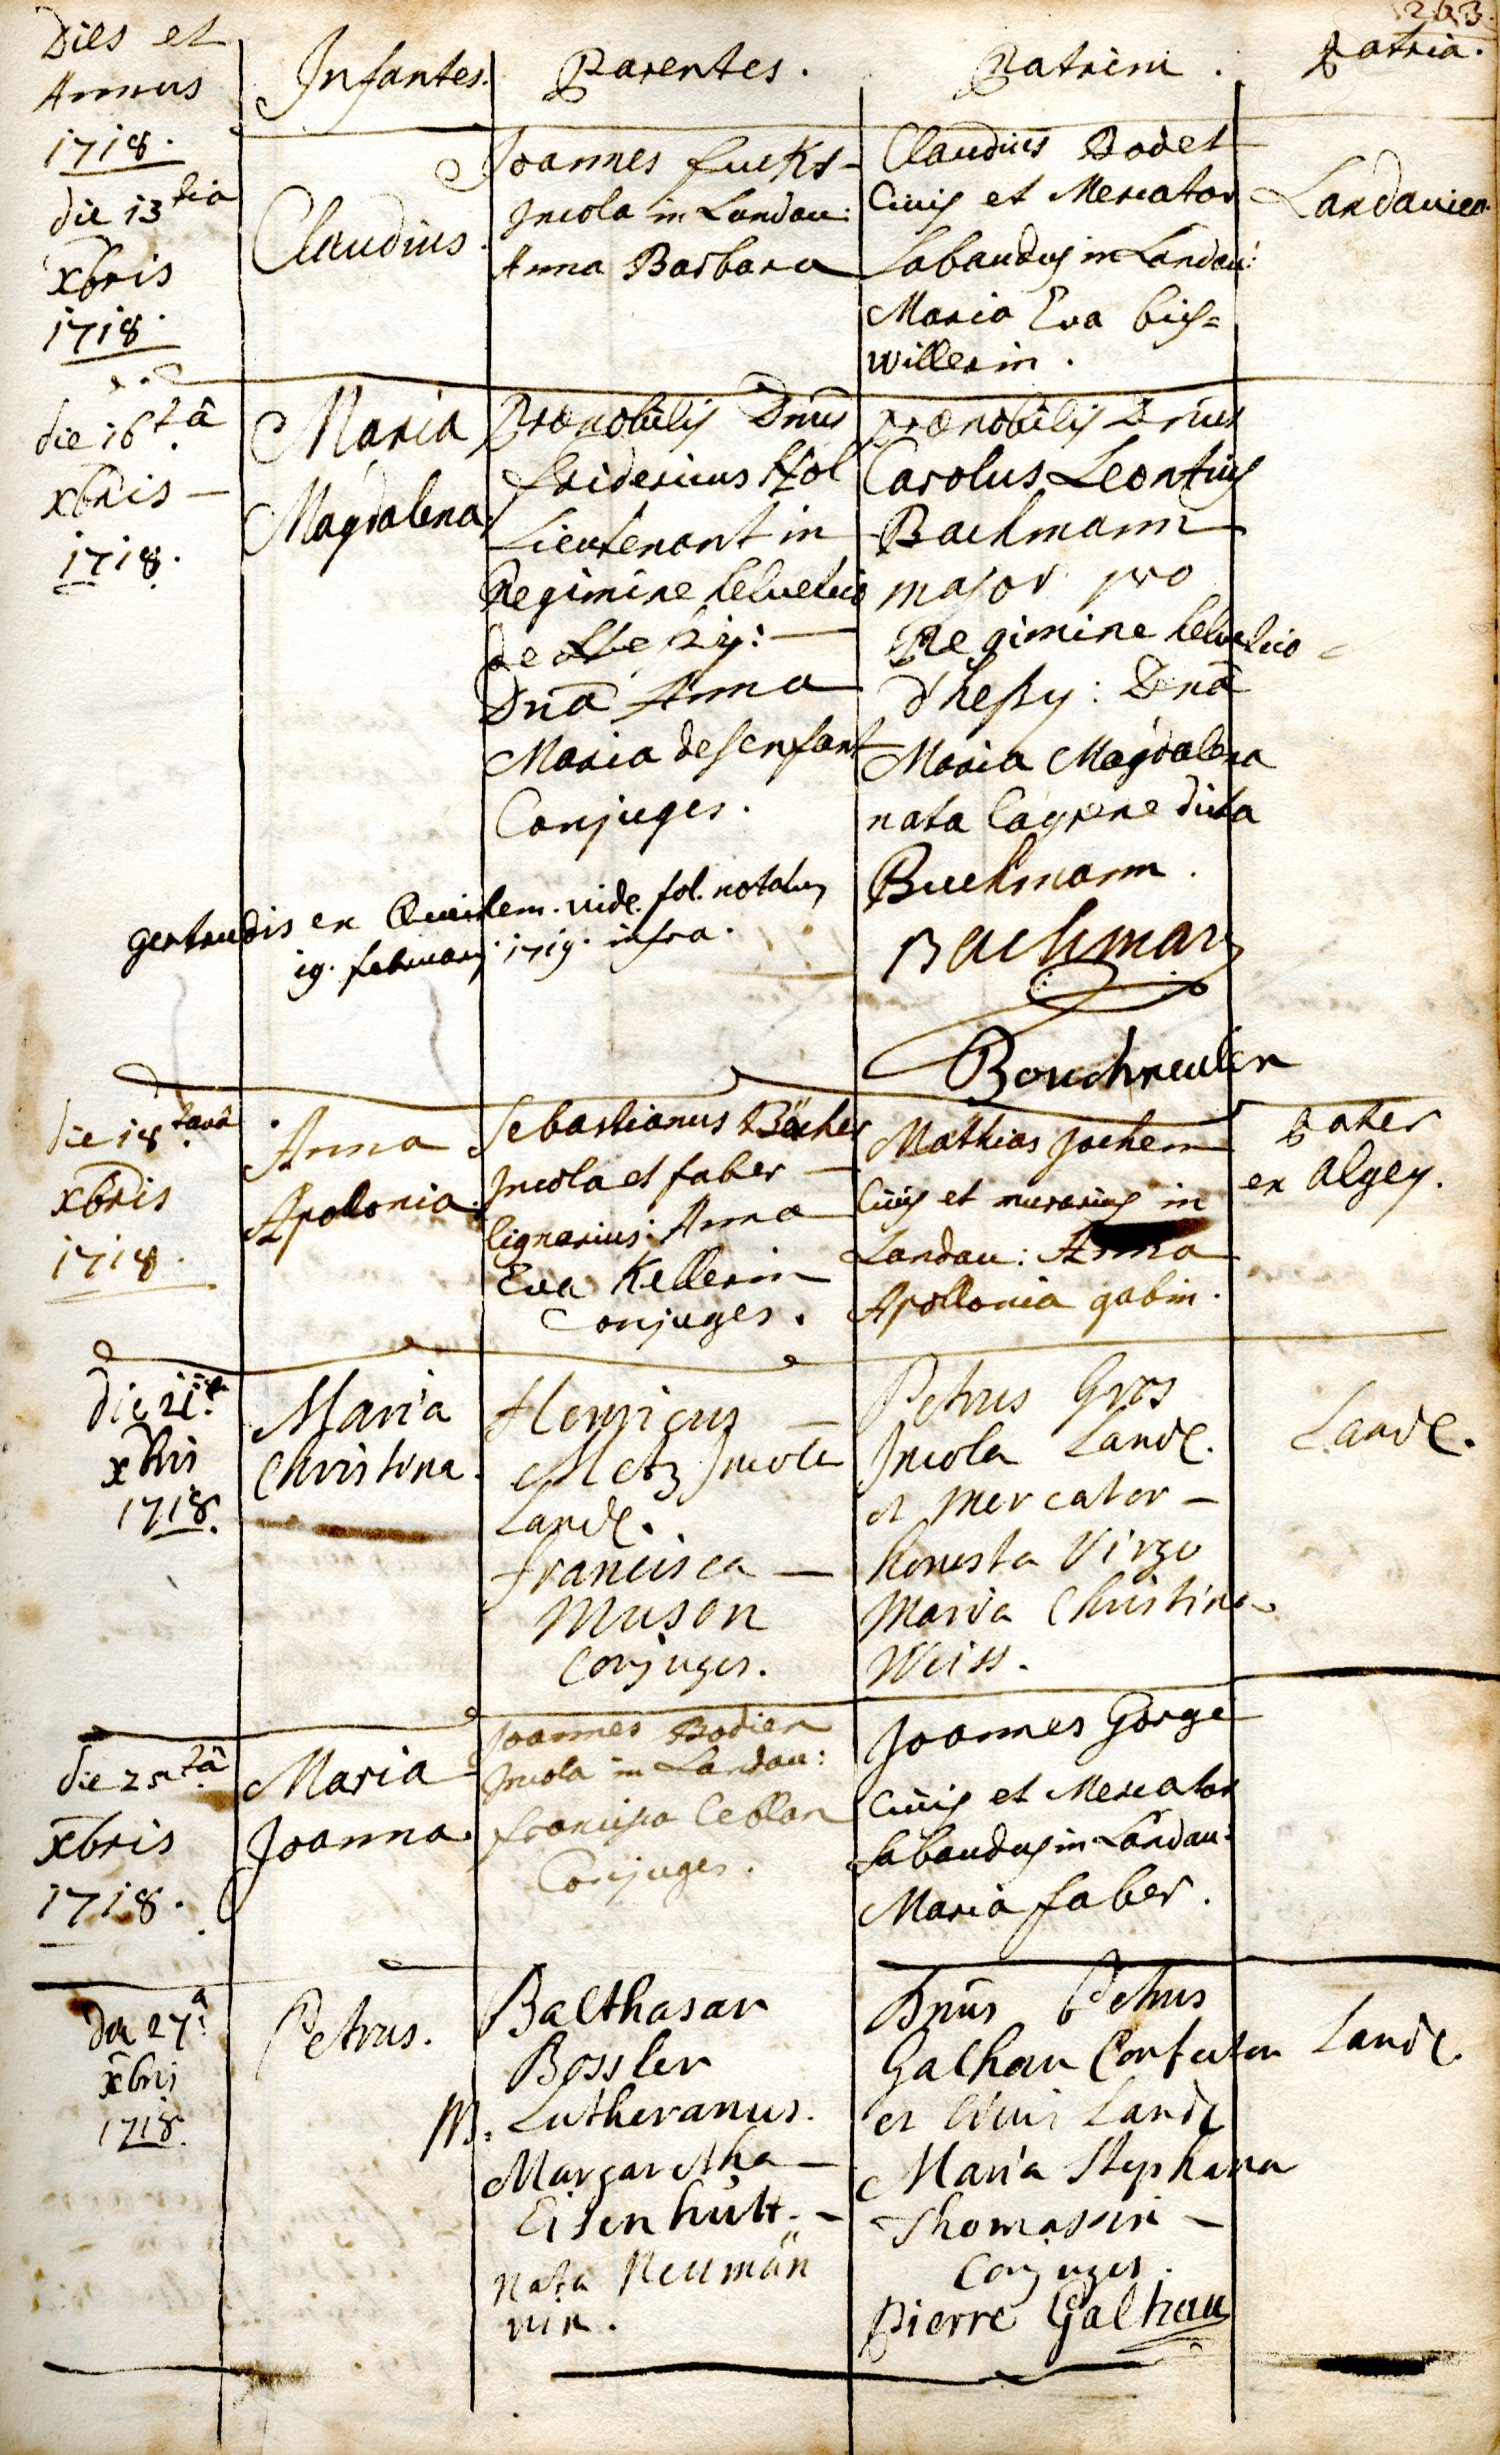 263.
Dies et
Annus
Infantes.
Parentes.
Patrini.
Patria.
1718.
die 13 tia
xbris
1718.
Claudius.
Joannes fucks
Incola in Landau:
Anna Barbara
Claudius Dodet
Civis et Mercator
Sabaudus in Landau:
Maria Eva bis=
willerin.
Landavien.
die 16 tâ
xbris
1718.
Maria
Magdalena
Prænobilis Dnus
fridericus
Lieutenant in
Regimine helvetico
de
Dnã Anna
Maria desenfant
Conjuges.
prænobilis Dnus
Carolus Leontius
Bachmann
major pro
Regimine helvetico
d'hessy: Dnã
Maria Magdalena
nata dicta
Buchmann.
Bachman
Gertrudis ex vide fol. notatum
19. februarij 1719. infra.
die 18 tavâ
xbris
1718.
Anna
Apolonia.
Sebastianus Bäcker
Incola et faber
lignarius: Anna
Eva Kellerin
Conjuges.
Mathias Jochem
Civis et murarius in
Landau: Anna
Apollonia gabin.
pater
ex algey.
die 21.a
xbris
1718.
Maria
Christina.
Henricus
Metz Incola
Land.
francisca
Muson
Conjuges.
Petrus Gros
Incola Land.
et mercator
honesta Virgo
Maria Christina
Weiss.
Land.
die 25 tâ
xbris
1718.
Maria
Joanna.
Joannes Bodien
Incola in Landau:
francisca leblan
Conjuges.
Joannes Gorge
Civis et Mercator
Sabaudus in Landau:
Maria faber.
die 27.a
xbris
1718.
Petrus.
Balthasar
Bossler
Lutheranus.
Margaretha
Eisenhutt.
nata Neumän
nin.
Dnus Petrus
Galhau
et Civis Land
Maria Stephana
Thomassin
Conjuges.
Pierre Galhau
Land.